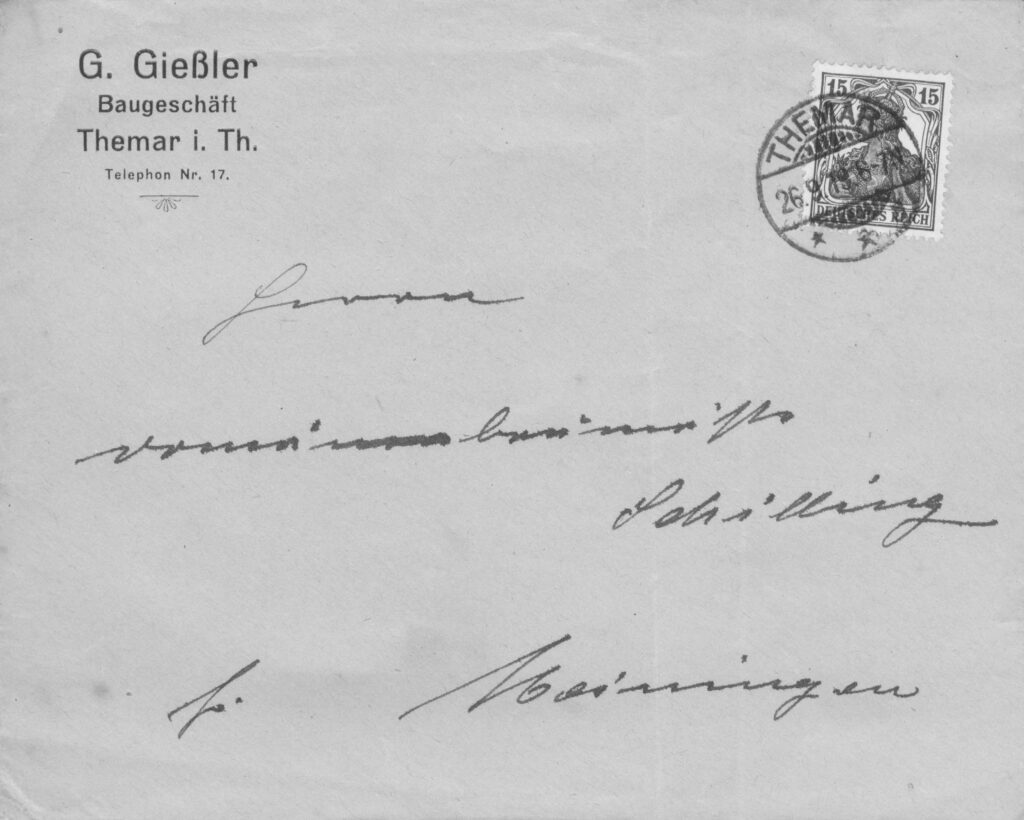 G. Gießler
Baugeschäft
Themar i. Th.
Telephon Nr. 17.
15 15
DEUTSCHES REICH
THEMAR
26.9.19. 6-7N
Herrn
Schilling
Meiningen